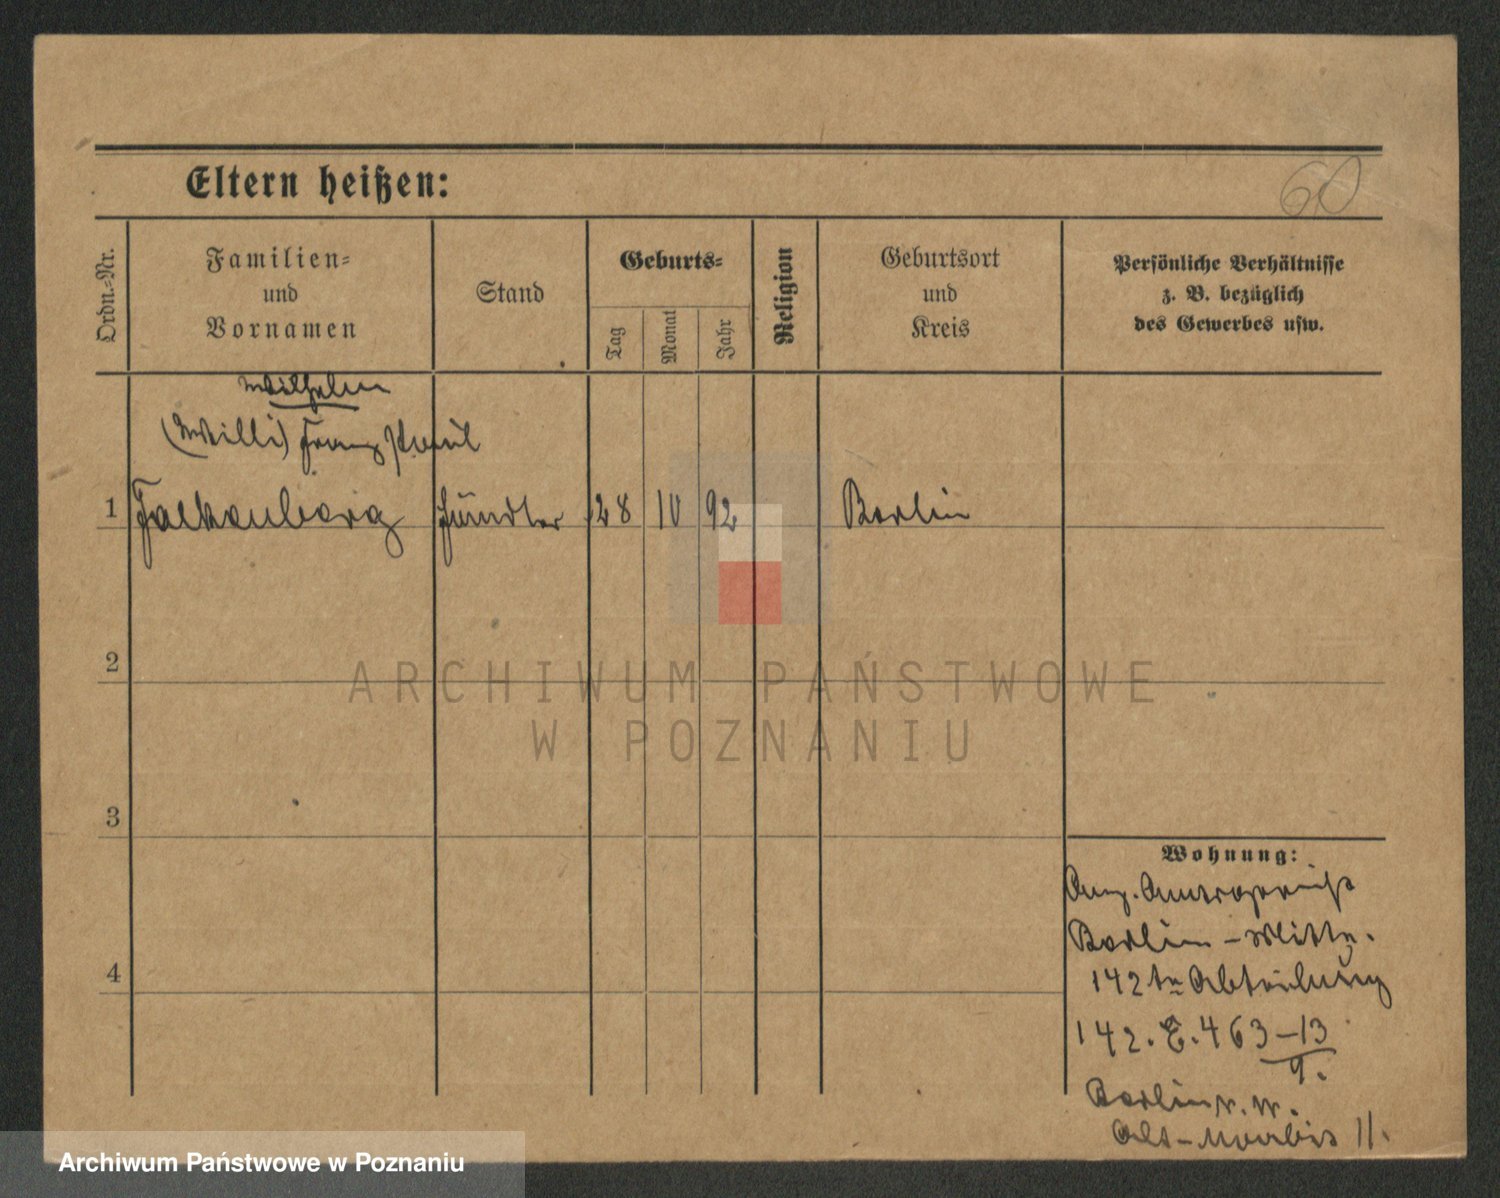 Eltern heißen:
60
Ordn.-Nr.
Familien-
und
Vornamen
Stand
Geburts-
Tag
Monat
Jahr
Religion
Geburtsort
und
Kreis
Persönliche Verhältnisse
z. B. bezüglich
des Gewerbes usw.
Wilhelm
(Willi) Franz Paul
1 Falkenberg Händler 28 10 92 Berlin
2
3
4
Wohnung:
Berlin-Mitte.
142te Abteilung
142. E. 463-13
9.
Berlin N. W.
Alt-Moabit 11.
ARCHIWUM PAŃSTWOWE
W POZNANIU
Archiwum Państwowe w Poznaniu